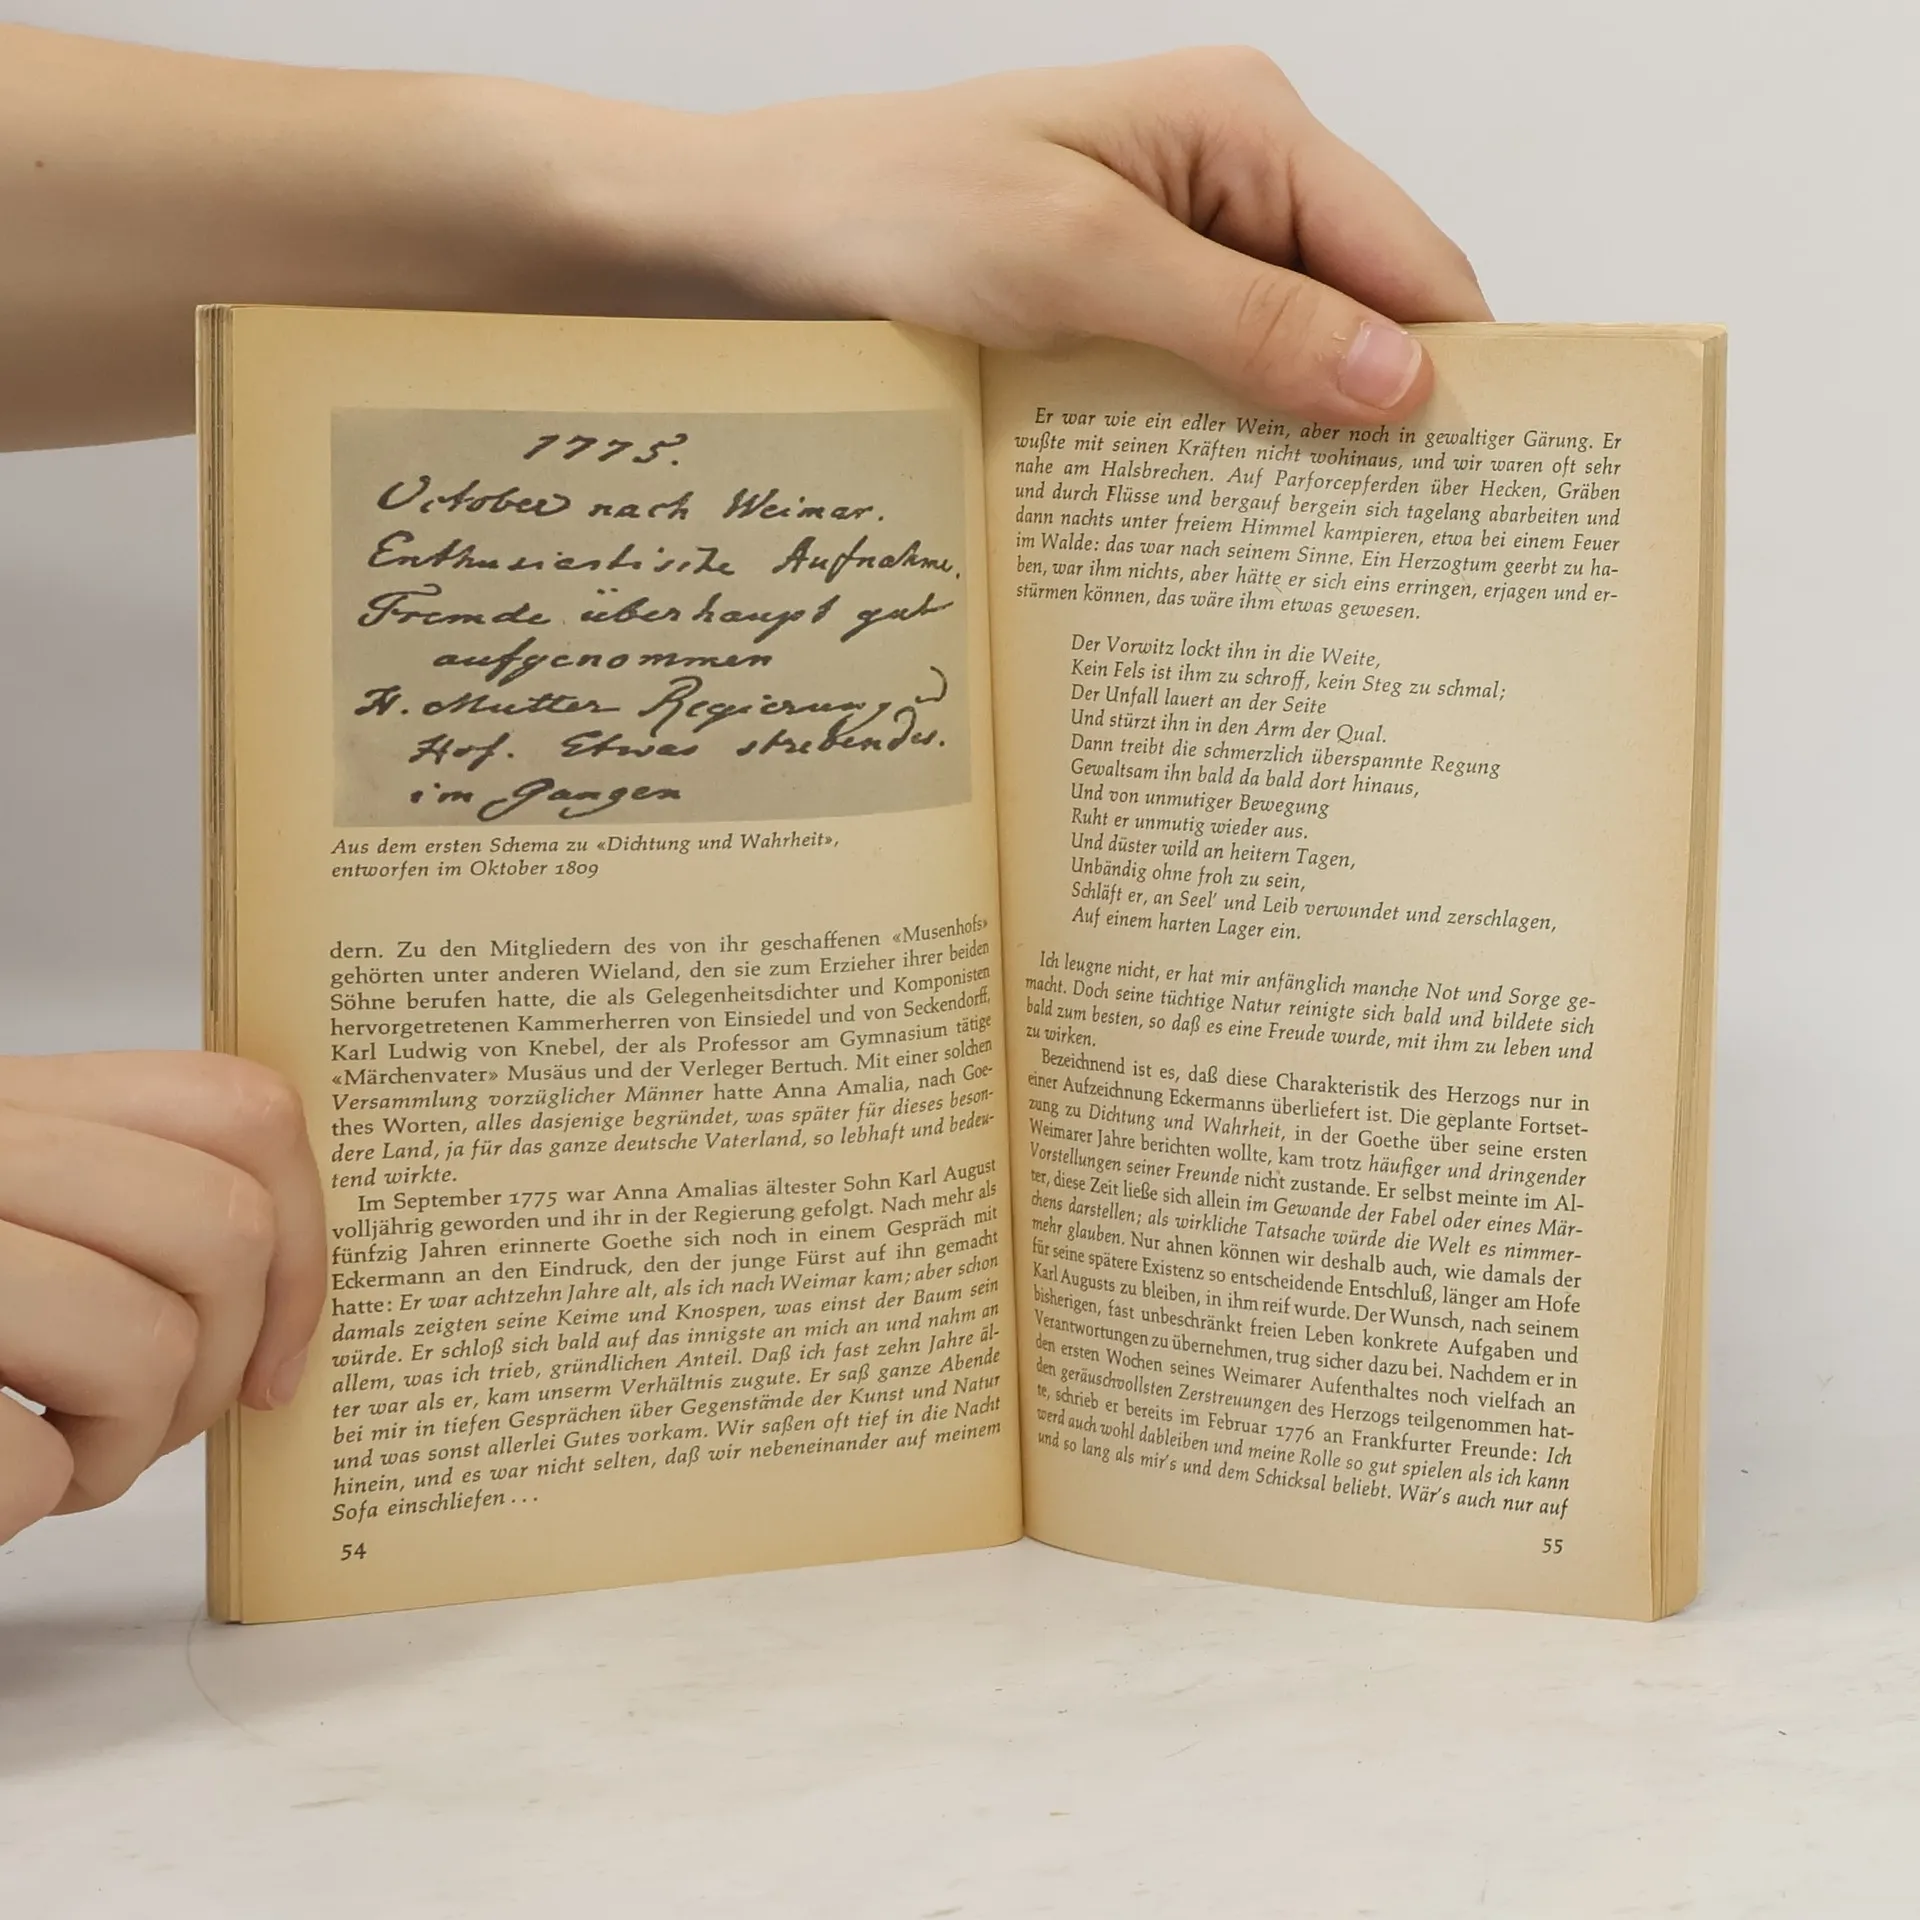 1775.
October nach Weimar.
Enthusiastische Aufnahme.
Fremde überhaupt gut
aufgenommen
H. Mutter Regierung
Hof. Etwas strebendes.
im Gangen
Aus dem ersten Schema zu «Dichtung und Wahrheit»,
entworfen im Oktober 1809
dern. Zu den Mitgliedern des von ihr geschaffenen «Musenhofs»
gehörten unter anderen Wieland, den sie zum Erzieher ihrer beiden
Söhne berufen hatte, die als Gelegenheitsdichter und Komponisten
hervorgetretenen Kammerherren von Einsiedel und von Seckendorff,
Karl Ludwig von Knebel, der als Professor am Gymnasium tätige
«Märchenvater» Musäus und der Verleger Bertuch. Mit einer solchen
Versammlung vorzüglicher Männer hatte Anna Amalia, nach Goe-
thes Worten, alles dasjenige begründet, was später für dieses beson-
dere Land, ja für das ganze deutsche Vaterland, so lebhaft und bedeu-
tend wirkte.
Im September 1775 war Anna Amalias ältester Sohn Karl August
volljährig geworden und ihr in der Regierung gefolgt. Nach mehr als
fünfzig Jahren erinnerte Goethe sich noch in einem Gespräch mit
Eckermann an den Eindruck, den der junge Fürst auf ihn gemacht
hatte: Er war achtzehn Jahre alt, als ich nach Weimar kam; aber schon
damals zeigten seine Keime und Knospen, was einst der Baum sein
würde. Er schloß sich bald auf das innigste an mich an und nahm an
allem, was ich trieb, gründlichen Anteil. Daß ich fast zehn Jahre äl-
ter war als er, kam unserm Verhältnis zugute. Er saß ganze Abende
bei mir in tiefen Gesprächen über Gegenstände der Kunst und Natur
und was sonst allerlei Gutes vorkam. Wir saßen oft tief in die Nacht
hinein, und es war nicht selten, daß wir nebeneinander auf meinem
Sofa einschliefen . . .
54
Er war wie ein edler Wein, aber noch in gewaltiger Gärung. Er
wußte mit seinen Kräften nicht wohinaus, und wir waren oft sehr
nahe am Halsbrechen. Auf Parforcepferden über Hecken, Gräben
und durch Flüsse und bergauf bergein sich tagelang abarbeiten und
dann nachts unter freiem Himmel kampieren, etwa bei einem Feuer
im Walde: das war nach seinem Sinne. Ein Herzogtum geerbt zu ha-
ben, war ihm nichts, aber hätte er sich eins erringen, erjagen und er-
stürmen können, das wäre ihm etwas gewesen.
Der Vorwitz lockt ihn in die Weite,
Kein Fels ist ihm zu schroff, kein Steg zu schmal;
Der Unfall lauert an der Seite
Und stürzt ihn in den Arm der Qual.
Dann treibt die schmerzlich überspannte Regung
Gewaltsam ihn bald da bald dort hinaus,
Und von unmutiger Bewegung
Ruht er unmutig wieder aus.
Und düster wild an heitern Tagen,
Unbändig ohne froh zu sein,
Schläft er, an Seel' und Leib verwundet und zerschlagen,
Auf einem harten Lager ein.
Ich leugne nicht, er hat mir anfänglich manche Not und Sorge ge-
macht. Doch seine tüchtige Natur reinigte sich bald und bildete sich
bald zum besten, so daß es eine Freude wurde, mit ihm zu leben und
zu wirken.
Bezeichnend ist es, daß diese Charakteristik des Herzogs nur in
einer Aufzeichnung Eckermanns überliefert ist. Die geplante Fortset-
zung zu Dichtung und Wahrheit, in der Goethe über seine ersten
Weimarer Jahre berichten wollte, kam trotz häufiger und dringender
Vorstellungen seiner Freunde nicht zustande. Er selbst meinte im Al-
ter, diese Zeit ließe sich allein im Gewande der Fabel oder eines Mär-
chens darstellen; als wirkliche Tatsache würde die Welt es nimmer-
mehr glauben. Nur ahnen können wir deshalb auch, wie damals der
für seine spätere Existenz so entscheidende Entschluß, länger am Hofe
Karl Augusts zu bleiben, in ihm reif wurde. Der Wunsch, nach seinem
bisherigen, fast unbeschränkt freien Leben konkrete Aufgaben und
Verantwortungen zu übernehmen, trug sicher dazu bei. Nachdem er in
den ersten Wochen seines Weimarer Aufenthaltes noch vielfach an
den geräuschvollsten Zerstreuungen des Herzogs teilgenommen hat-
te, schrieb er bereits im Februar 1776 an Frankfurter Freunde: Ich
werd auch wohl dableiben und meine Rolle so gut spielen als ich kann
und so lang als mir's und dem Schicksal beliebt. Wär's auch nur auf
55